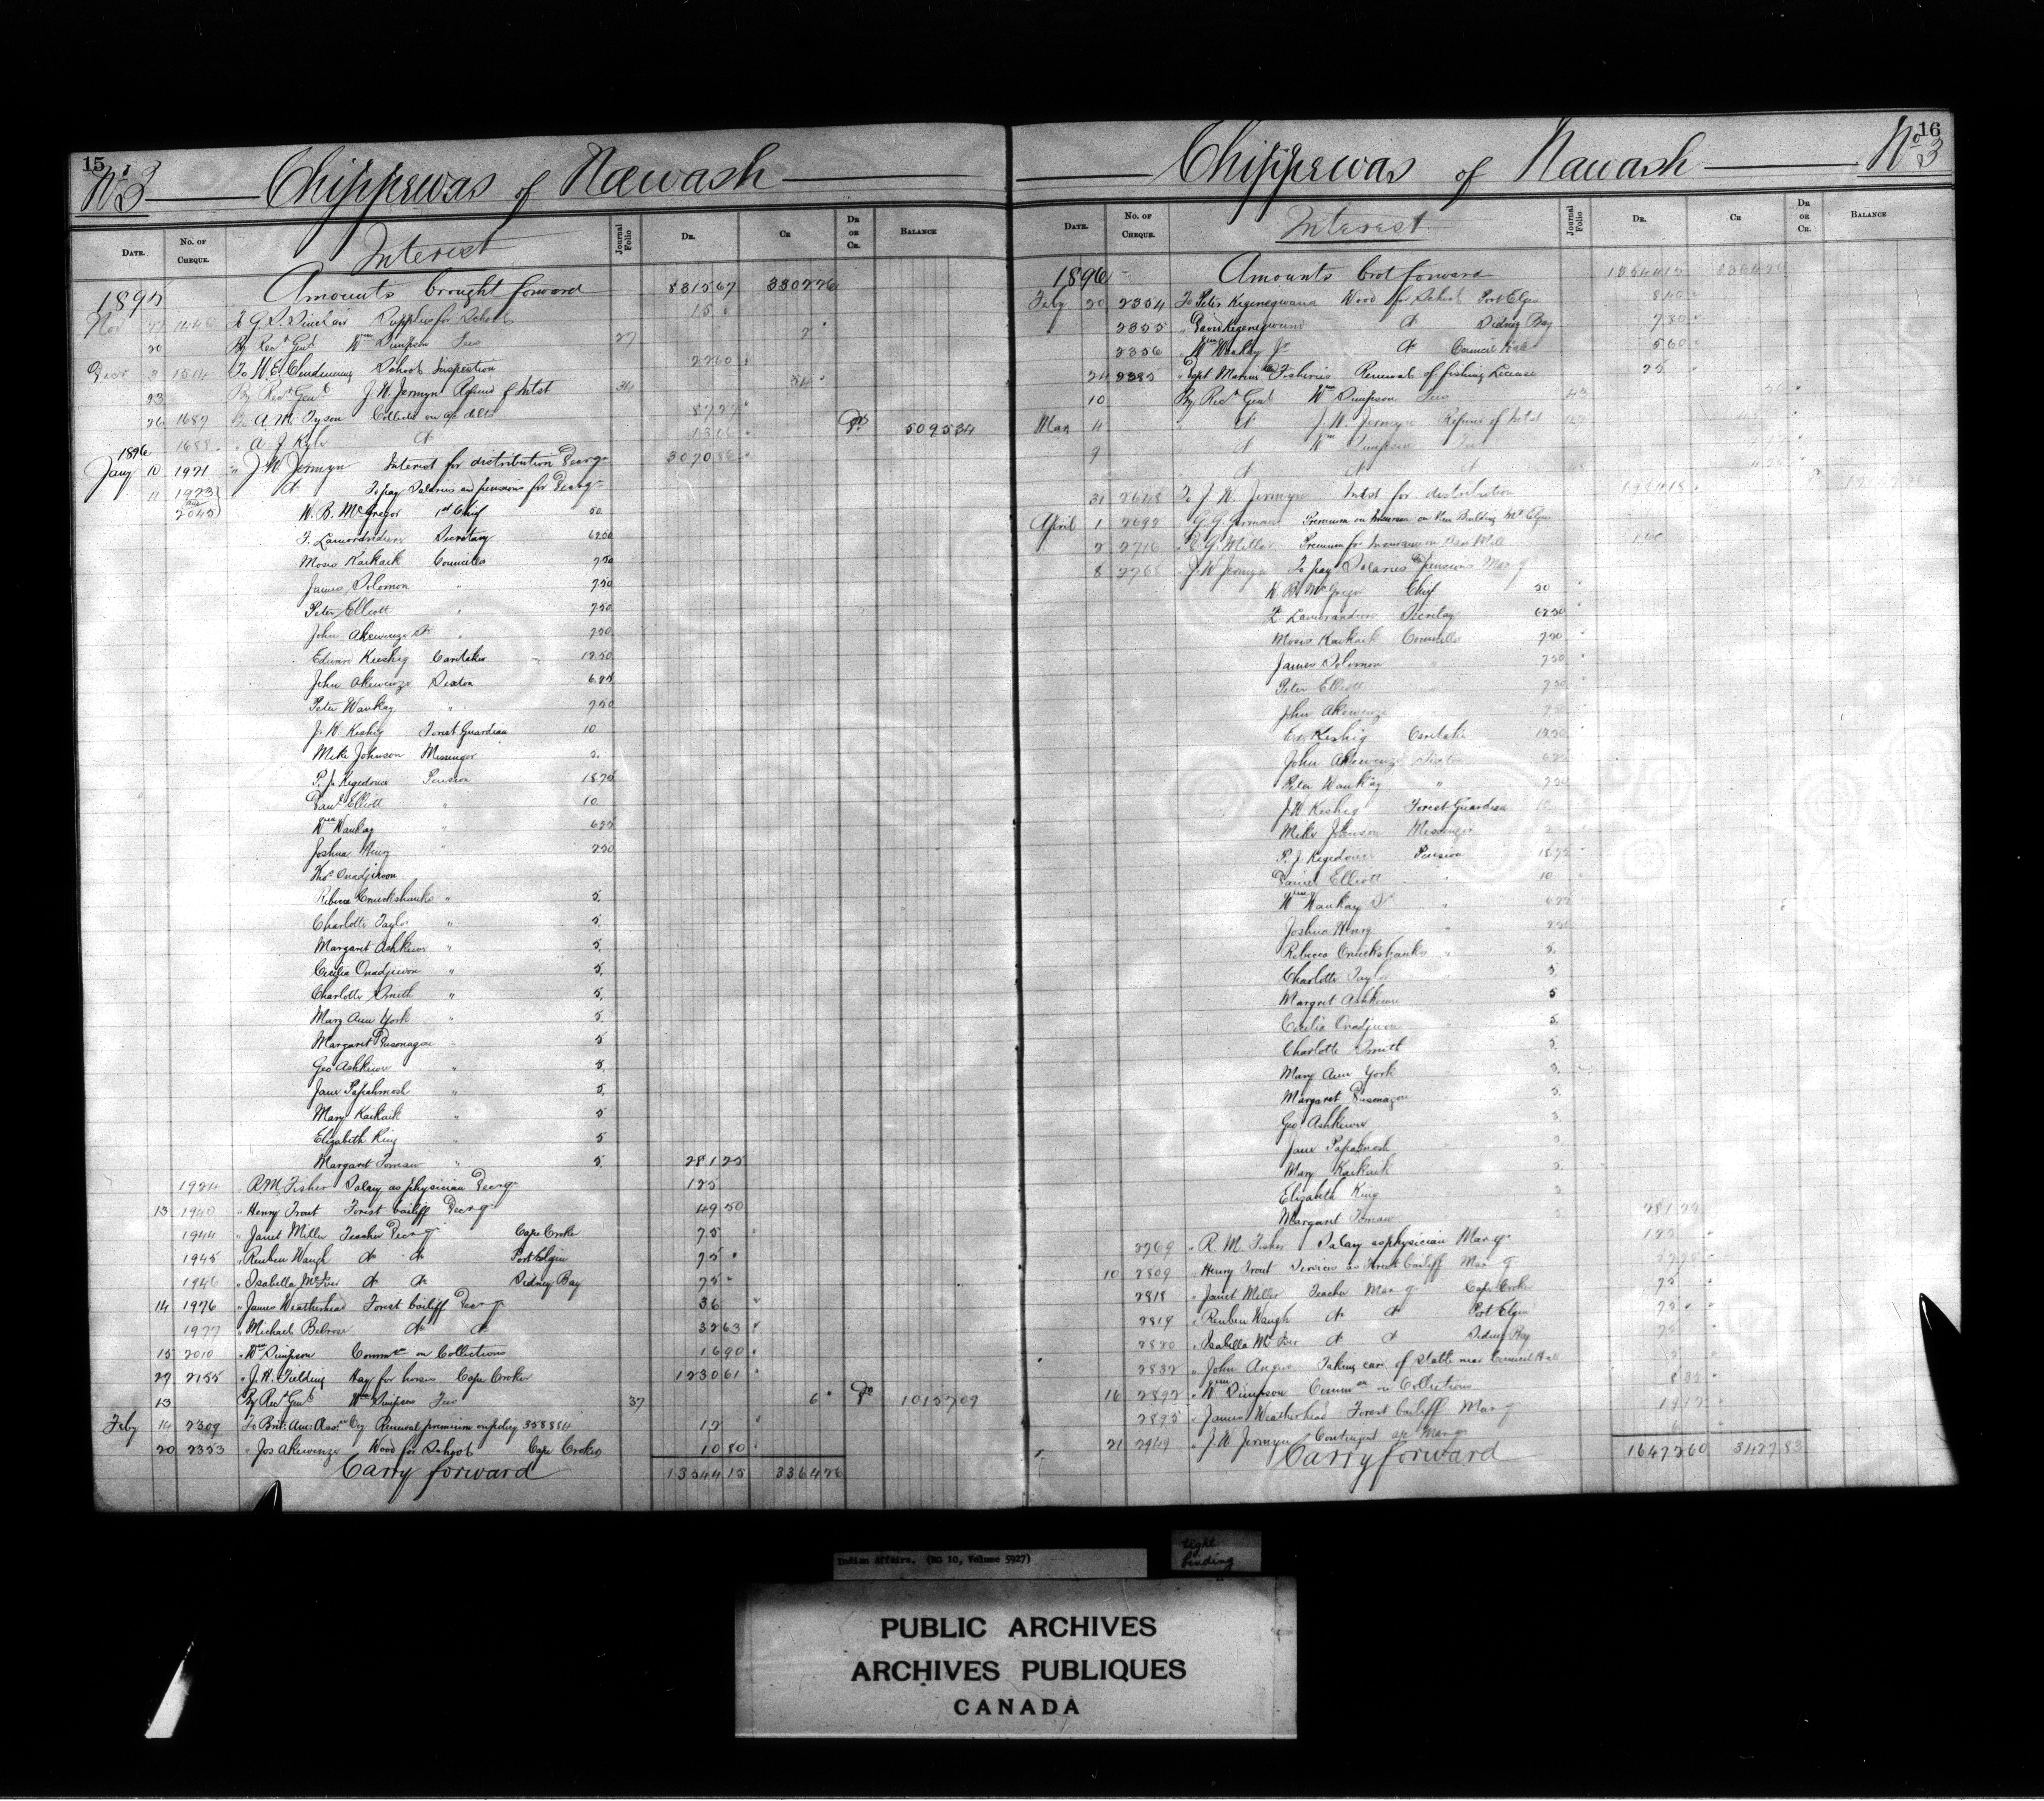 15
No 3 Chippewas of Nawash
DATE. No. OF CHEQUE. Interest Journal Folio DR. CR DR OR CR. BALANCE
1895 Amounts brought forward 831567 330226
Nov 27 1446 To G. D. Sinclair Supplies for Schools 15
20 By Recr Genl Wm Simpson Fees 27 7
Decr 3 1514 To W. E. Clendenning School Inspection 2260
23 By Recr Genl J. W. Jermyn Refund of Intst 34 54
26 1687 To A. M. Tyson Collected on a/c debts 8727
1688 " A. J. Kyle do 1306 Dr 509534
1896
Jany 10 1921 " J. W. Jermyn Interest for distribution Decr qr 307086
11 1923 and 2045 do To pay Salaries and pensions for Decr qr
W. B. McGregor 1st Chief 50
F. Lamorandiere Secretary 6250
Moses Kaikaik Councillor 750
James Solomon " 750
Peter Elliott " 750
John Akewenze Sr " 750
Edward Keeshig Caretaker 1250
John Akewenze Sexton 625
Peter Waukay " 250
J. W. Keshig Forest Guardian 10
Mike Johnson Messenger 5
P. J. Kegedonce Pension 1875
Danl Elliott " 10
Wm Waukay " 625
Joshua Henry " 250
Thos Onadjiwon
Rebecca Cruickshanks " 5
Charlotte Taylor " 5
Margaret Ashkewe " 5
Cecilia Onadjiwon " 5
Charlotte Smith " 5
Mary Ann York " 5
Margaret Pusonagou " 5
Geo Ashkewe " 5
Jane Papahmosh " 5
Mary Kaikaik " 5
Elizabeth King " 5
Margaret Tomaw " 5 28125
1924 " R. M. Fisher Salary as physician Decr qr 125
13 1940 " Henry Trout Forest bailiff Decr qr 4950
1944 " Janet Miller Teacher Decr qr Cape Croker 75
1945 " Reuben Waugh do do Port Elgin 75
1946 " Isabella McIver do do Sidney Bay 75
14 1976 " James Weatherhead Forest bailiff Decr qr 36
1977 " Michael Belrose do do 3263
15 2010 " Wm Simpson Commn on Collections 1690
29 2155 " J. H. Fielding Hay for horses Cape Croker 123061
13 By Recr Genl Wm Simpson Fees 37 6 Dr 1015709
Feby 14 2309 To Brit. Am. Assce Coy Renewal premium on policy 358814 15
20 2353 " Jos Akewenze Wood for School Cape Croker 1080
Carry forward 1354415 336426
16
Chippewas of Nawash No 3
DATE. No. OF CHEQUE. Interest Journal Folio DR. CR DR OR CR. BALANCE
1896 Amounts brot forward 1354415 336426
Feby 20 2354 To Peter Kegenegwana Wood for School Port Elgin 840
2355 " David Kegenegwound do Sidney Bay 780
2356 " Wm Waukay Jr do Council Hall 560
24 2385 " Dept Marine & Fisheries Renewal of fishing License 25
10 By Recr Genl Wm Simpson Fees 43 20
Mar 4 do J. W. Jermyn Refund of Intst 47
9 do Wm Simpson Fees
do do do 48
31 2648 To J. W. Jermyn Intst for distribution 198418
April 1 2692 " G. G. Premium on Insurance on New Building Pt Elgin
2 2716 " R. G. Miller Premium for Insurance on Saw Mill
8 2768 " J. W. Jermyn To pay Salaries & pensions Mar qr
W. B. McGregor Chief 50
F. Lamorandiere Secretary 6250
Moses Kaikaik Councillor 750
James Solomon " 750
Peter Elliott 750
John Akewenze 750
Ed. Keshig Caretaker 1250
John Akewenze Sexton 625
Peter Waukay " 250
J. W. Keshig Forest Guardian 10
Mike Johnson Messenger 5
P. J. Kegedonce Pension 1875
Daniel Elliott " 10
Wm Waukay Sr " 625
Joshua Henry " 250
Rebecca Cruickshanks " 5
Charlotte Taylor 5
Margret Ashkewe 5
Cecilia Onadjiwon 5
Charlotte Smith 5
Mary Ann York 5
Margaret Pusonagou 5
Geo Ashkewe 5
Jane Papahmosh 5
Mary Kaikaik 5
Elizabeth King 5
Margaret Tomaw 5 28125
2769 " R. M. Fisher Salary as physician Mar qr 125
10 2809 " Henry Trout Services as Forest bailiff Mar qr
2818 " Janet Miller Teacher Mar qr Cape Croker 75
2819 " Reuben Waugh do do Port Elgin 75
2820 " Isabella McIver do do Sidney Bay 75
2832 " John Angus Taking care of Stable near Council Hall
16 2892 " Wm Simpson Commn on Collections 832
2895 " James Weatherhead Forest bailiff Mar qr
21 2949 " J. W. Jermyn Contingent a/c Mar qr
Carry forward 1647260 342783
Indian Affairs. (RG 10, Volume 5927)
tight binding
PUBLIC ARCHIVES
ARCHIVES PUBLIQUES
CANADA